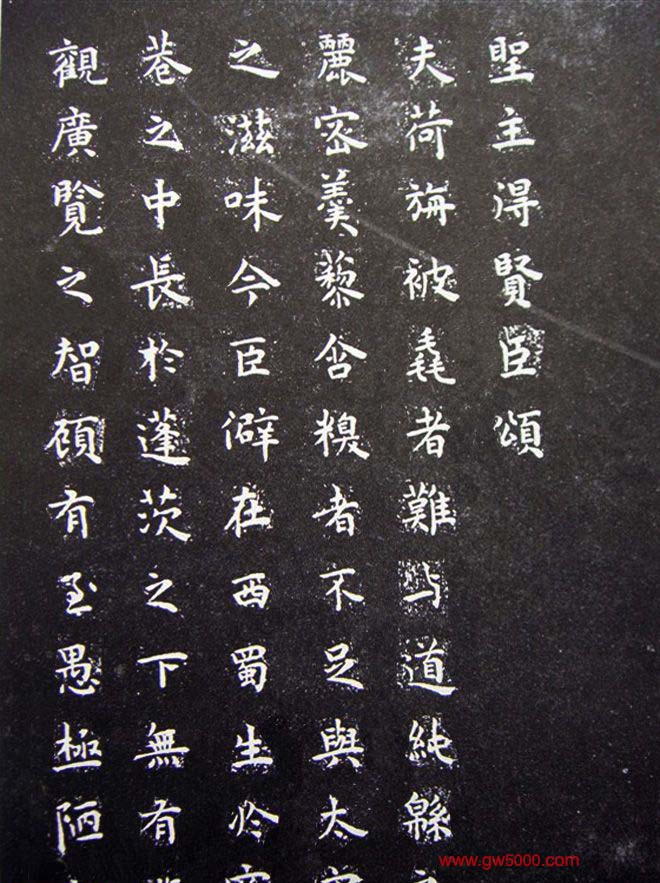 聖主得賢臣頌
夫荷旃被毳者難与道純緜
麗密羹藜含糗者不足與太
之滋味今臣僻在西蜀生於
巷之中長於蓬茨之下無有
觀廣覽之智顧有至愚極陋
www.gw5000.com